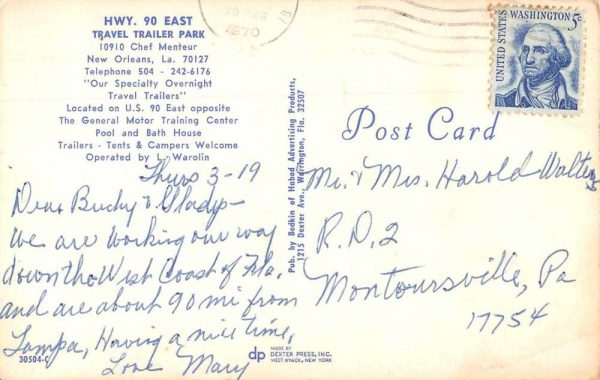 HWY. 90 EAST
TRAVEL TRAILER PARK
10910 Chef Menteur
New Orleans, La. 70127
Telephone 504 - 242-6176
"Our Specialty Overnight
Travel Trailers"
Located on U.S. 90 East opposite
The General Motor Training Center
Pool and Bath House
Trailers - Tents & Campers Welcome
Operated by L. Warolin
Thurs 3-19
Dear Bucky & Gladys-
We are working our way
down the West Coast of Fla.
and are about 90 mi from
Tampa, Having a nice time,
Love Mary
30504-C
Pub. by Bodkin of Habod Advertising Products,
1215 Dexter Ave., Warrington, Fla. 32507
dp
MADE BY
DEXTER PRESS, INC.
WEST NYACK, NEW YORK
1970
UNITED STATES
WASHINGTON
5c
Post Card
Mr. & Mrs. Harold Walters
R.D.2
Montoursville, Pa
17754